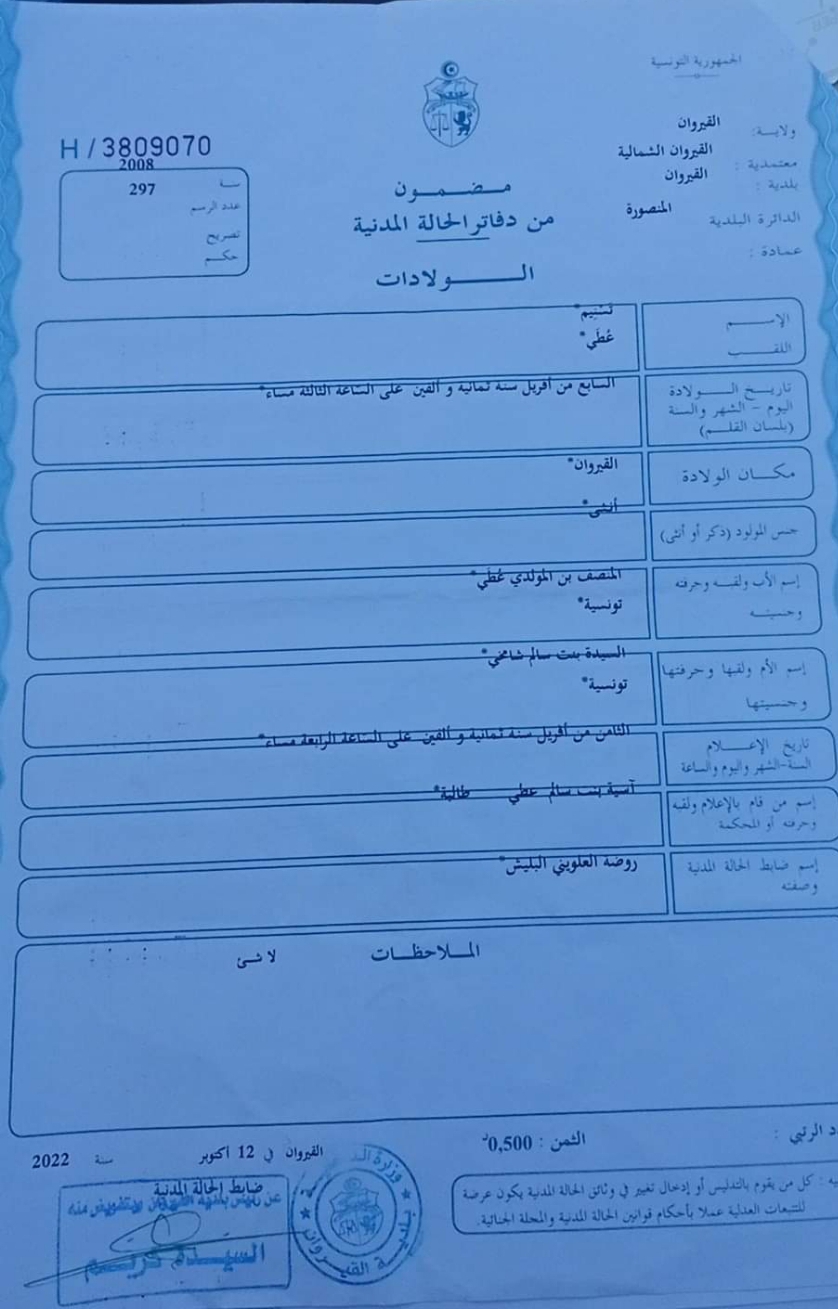 الجمهورية التونسية
ولاية: القيروان
معتمدية : القيروان الشمالية
بلدية : القيروان
الدائرة البلدية المنصورة
عمادة :
H / 3809070
سنة 2008
عدد الرسم 297
تصريح
حكم
مضمون
من دفاتر الحالة المدنية
الولادات
الإسم تسنيم*
اللقب عُطي*
تاريخ الولادة السابع من أفريل سنة ثمانية و ألفين على الساعة الثالثة مساء*
اليوم - الشهر والسنة
(بلسان القلم)
مكان الولادة القيروان*
جنس المولود (ذكر أو أنثى) أنثى*
إسم الأب ولقبه وحرفته المنصف بن المولدي عُطي*
وجنسيته تونسية*
إسم الأم ولقبها وحرفتها السيدة بنت سالم شامخي*
وجنسيتها تونسية*
تاريخ الإعلام الثامن من أفريل سنة ثمانية و ألفين على الساعة الرابعة مساء*
السنة-الشهر واليوم والساعة
إسم من قام بالإعلام ولقبه آسية بنت سالم عطي طالبة*
وحرفته أو المحكمة
إسم ضابط الحالة المدنية روضة العلويني البليش*
وصفته
الملاحظات
لا شئ
د الرتبي :
الثمن : 0,500د
القيروان في 12 اكتوبر سنة 2022
ضابط الحالة المدنية
عن رئيس بلدية القيروان وبتفويض منه
السيدة كريم
بلدية القيروان
يه : كل من يقوم بالتدليس أو إدخال تغيير في وثائق الحالة المدنية يكون عرضة
للتتبعات العدلية عملا بأحكام قوانين الحالة المدنية والمجلة الجنائية.